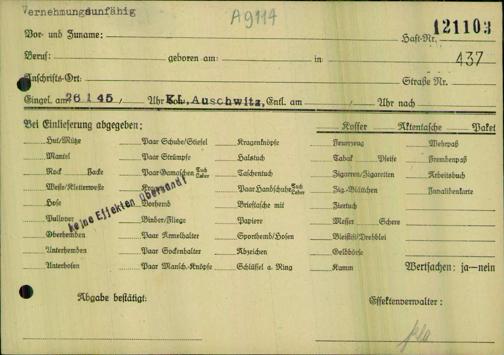 Vernehmungsunfähig
A9114
121103
Vor- und Zuname: Haft-Nr.
Beruf: geboren am: in: 437
Anschrifts-Ort: Straße Nr.
Eingel. am 26 1 45 Uhr von KL.Auschwitz, Entl. am / Uhr nach
Bei Einlieferung abgegeben: Koffer Aktentasche Paket
Hut/Mütze Paar Schuhe/Stiefel Kragenknöpfe Feuerzeug Wehrpaß
Mantel Paar Strümpfe Halstuch Tabak Pfeife Fremdenpaß
Rock Jacke Paar Gamaschen Tuch Leder Taschentuch Zigarren/Zigaretten Arbeitsbuch
Weste/Kletterweste Kragen Paar Handschuhe Tuch Leder Zig.-Blättchen Invalidenkarte
Hose Vorhemd Brieftasche mit Ziertuch
Pullover Binder/Fliege Papiere Messer Schere
Oberhemden Paar Ärmelhalter Sporthemd/Hosen Bleistift/Drehblei
Unterhemden Paar Sockenhalter Abzeichen Geldbörse
Unterhosen Paar Mansch.-Knöpfe Schlüssel a. Ring Kamm Wertsachen: ja—nein
keine Effekten übersandt
Abgabe bestätigt: Effektenverwalter: